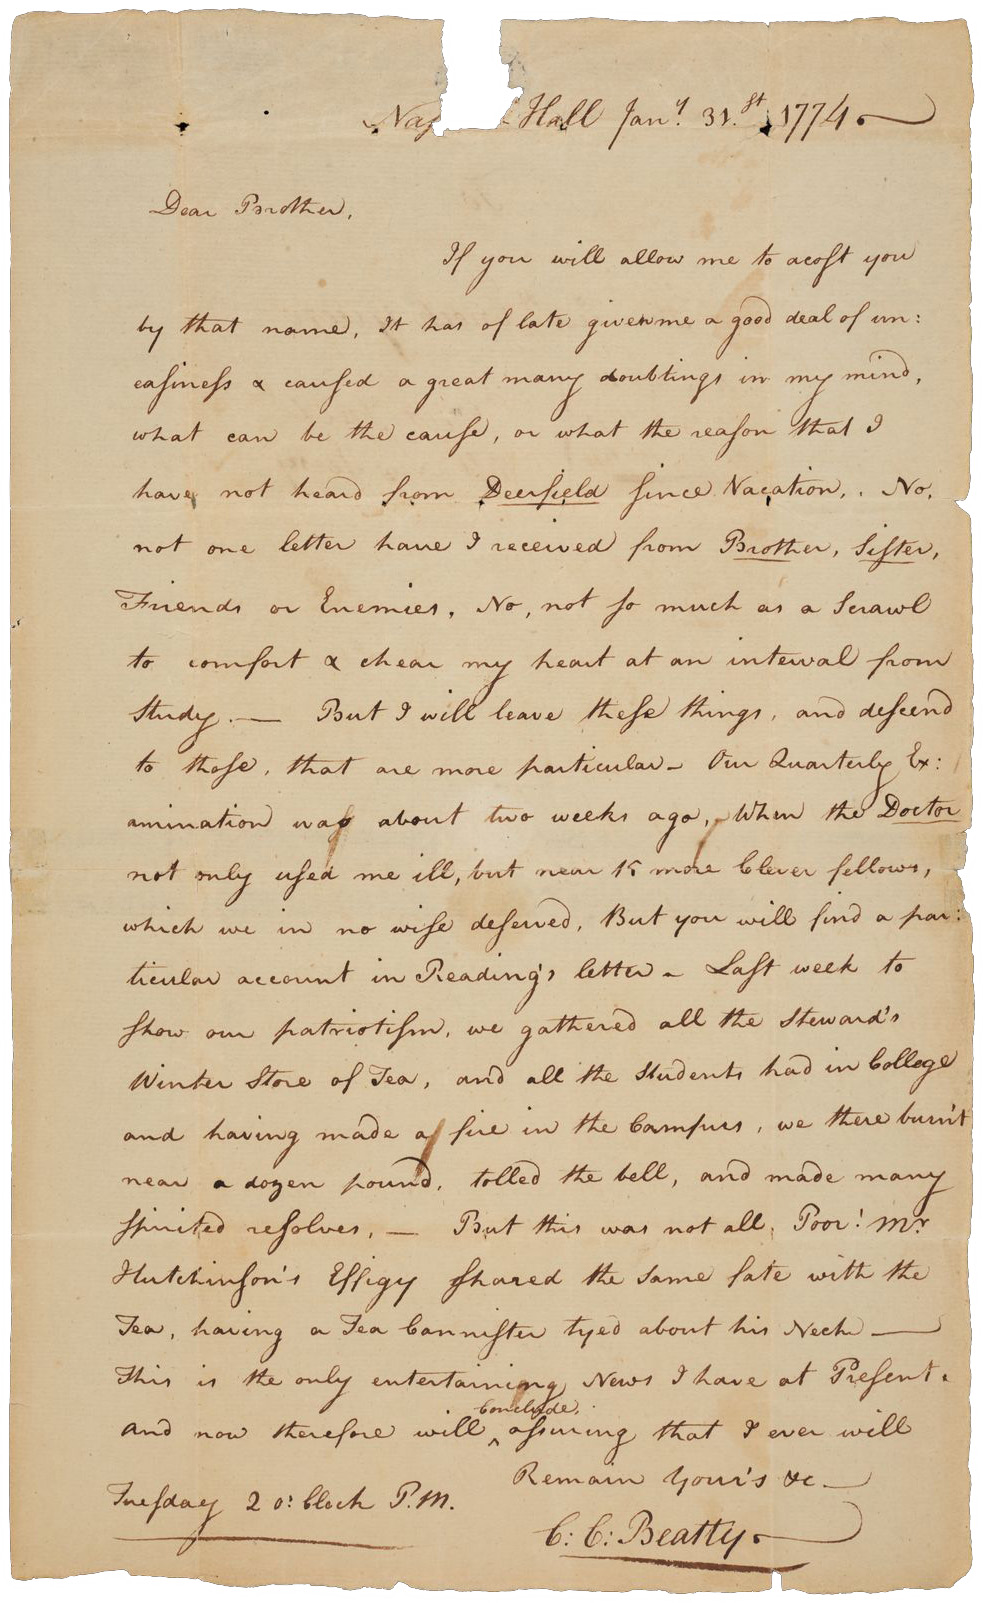 Nas Hall Jany. 31.st 1774.
Dear Brother,
If you will allow me to acost you
by that name, It has of late given me a good deal of un:
easiness & caused a great many doubtings in my mind,
what can be the cause, or what the reason that I
have not heard from Deerfield since Vacation,. No,
not one letter have I received from Brother, Sister,
Friends or Enemies, No, not so much as a Scrawl
to comfort & chear my heart at an interval from
Study. — But I will leave these things, and descend
to those, that are more particular — Our Quarterly Ex:
amination was about two weeks ago, When the Doctor
not only used me ill, but near 15 more Clever fellows,
which we in no wise deserved, But you will find a par:
ticular account in Reading's letter — Last week to
show our patriotism, we gathered all the Steward's
Winter Store of Tea, and all the Students had in College
and having made a fire in the Campus, we there burn't
near a dozen pound, tolled the bell, and made many
spirited resolves, — But this was not all, Poor! Mr
Hutchinson's Effigy shared the same fate with the
Tea, having a Tea Cannister tyed about his Neck —
This is the only entertaining News I have at Present.
and now therefore will ^ Conclude, assuring that I ever will
Remain Your's &c —
Tuesday 2 o: Clock P.M.
C: C: Beatty.